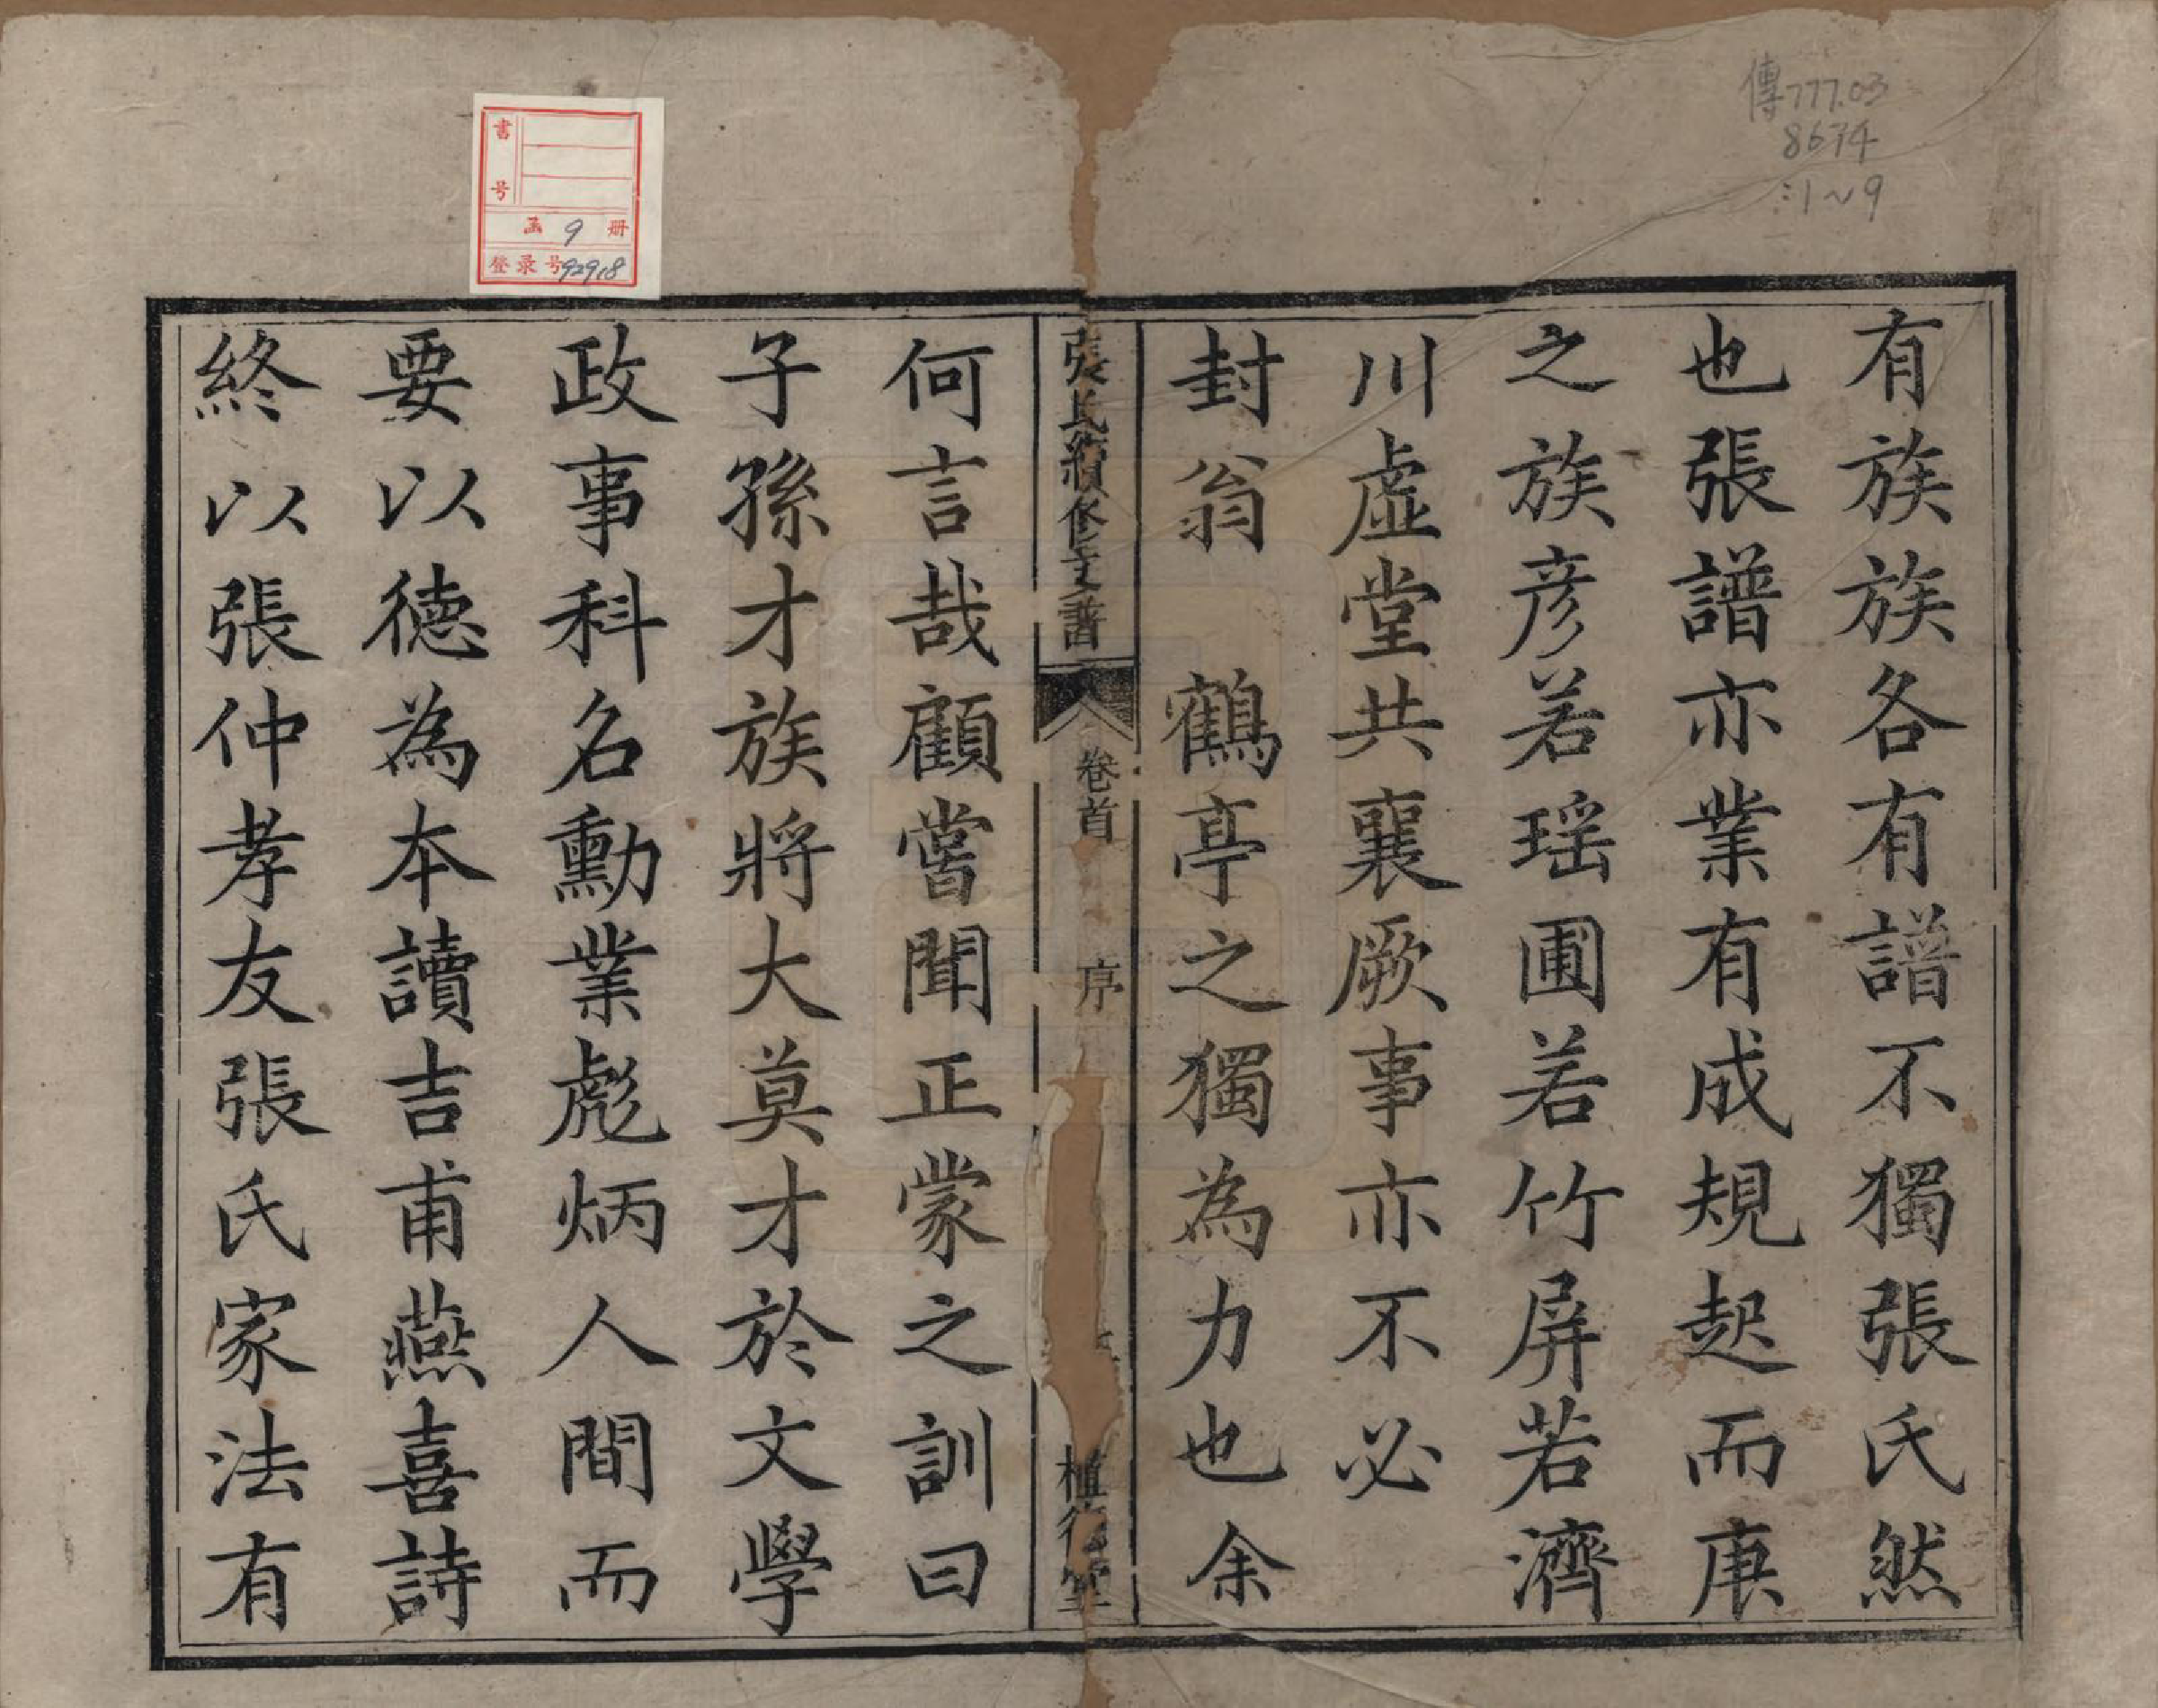 有族族各有譜不獨張氏然
也張譜亦業有成規起而庚
之族彦若瑶圃若竹屏若濟
川虛堂共襄厥事亦不必
封翁 鶴亭之獨為力也余
張氏續修支譜 卷首 序 植德堂
何言哉顧嘗聞正蒙之訓曰
子孫才族將大莫才於文學
政事科名勳業彪炳人間而
要以德為本讀吉甫燕喜詩
終以張仲孝友張氏家法有
傳777.03
8674
:1~9
書号
函 9 册
登录号